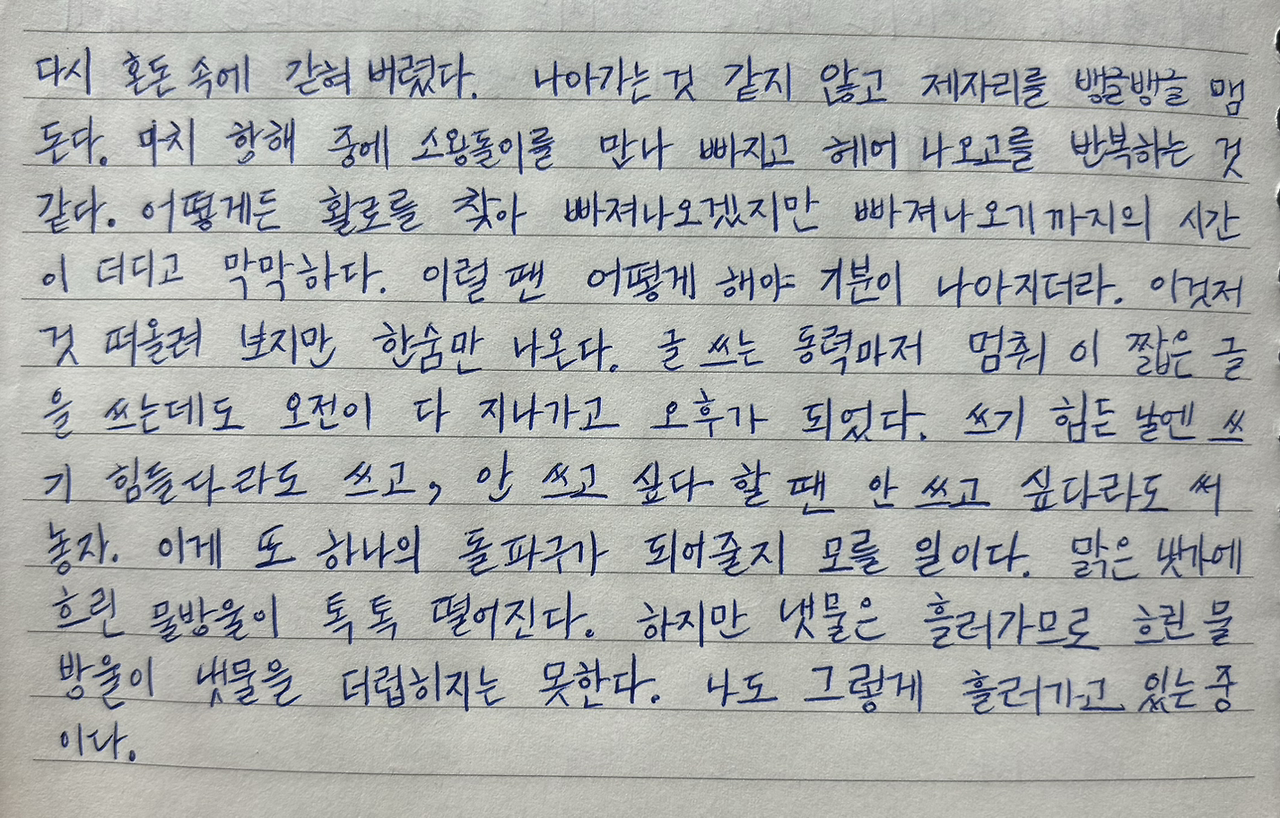 다시 혼돈 속에 갇혀 버렸다. 나아가는 것 같지 않고 제자리를 뱅글뱅글 맴
돈다. 마치 항해 중에 소용돌이를 만나 빠지고 헤어 나오고를 반복하는 것
같다. 어떻게든 활로를 찾아 빠져나오겠지만 빠져나오기까지의 시간
이 더디고 막막하다. 이럴 땐 어떻게 해야 기분이 나아지더라. 이것저
것 떠올려 보지만 한숨만 나온다. 글 쓰는 동력마저 멈춰 이 짧은 글
을 쓰는데도 오전이 다 지나가고 오후가 되었다. 쓰기 힘든 날엔 쓰
기 힘들다라도 쓰고, 안 쓰고 싶다 할 땐 안 쓰고 싶다라도 써
놓자. 이게 또 하나의 돌파구가 되어줄지 모를 일이다. 맑은 냇가에
흐린 물방울이 톡 톡 떨어진다. 하지만 냇물은 흘러가므로 흐린 물
방울이 냇물을 더럽히지는 못한다. 나도 그렇게 흘러가고 있는 중
이다.